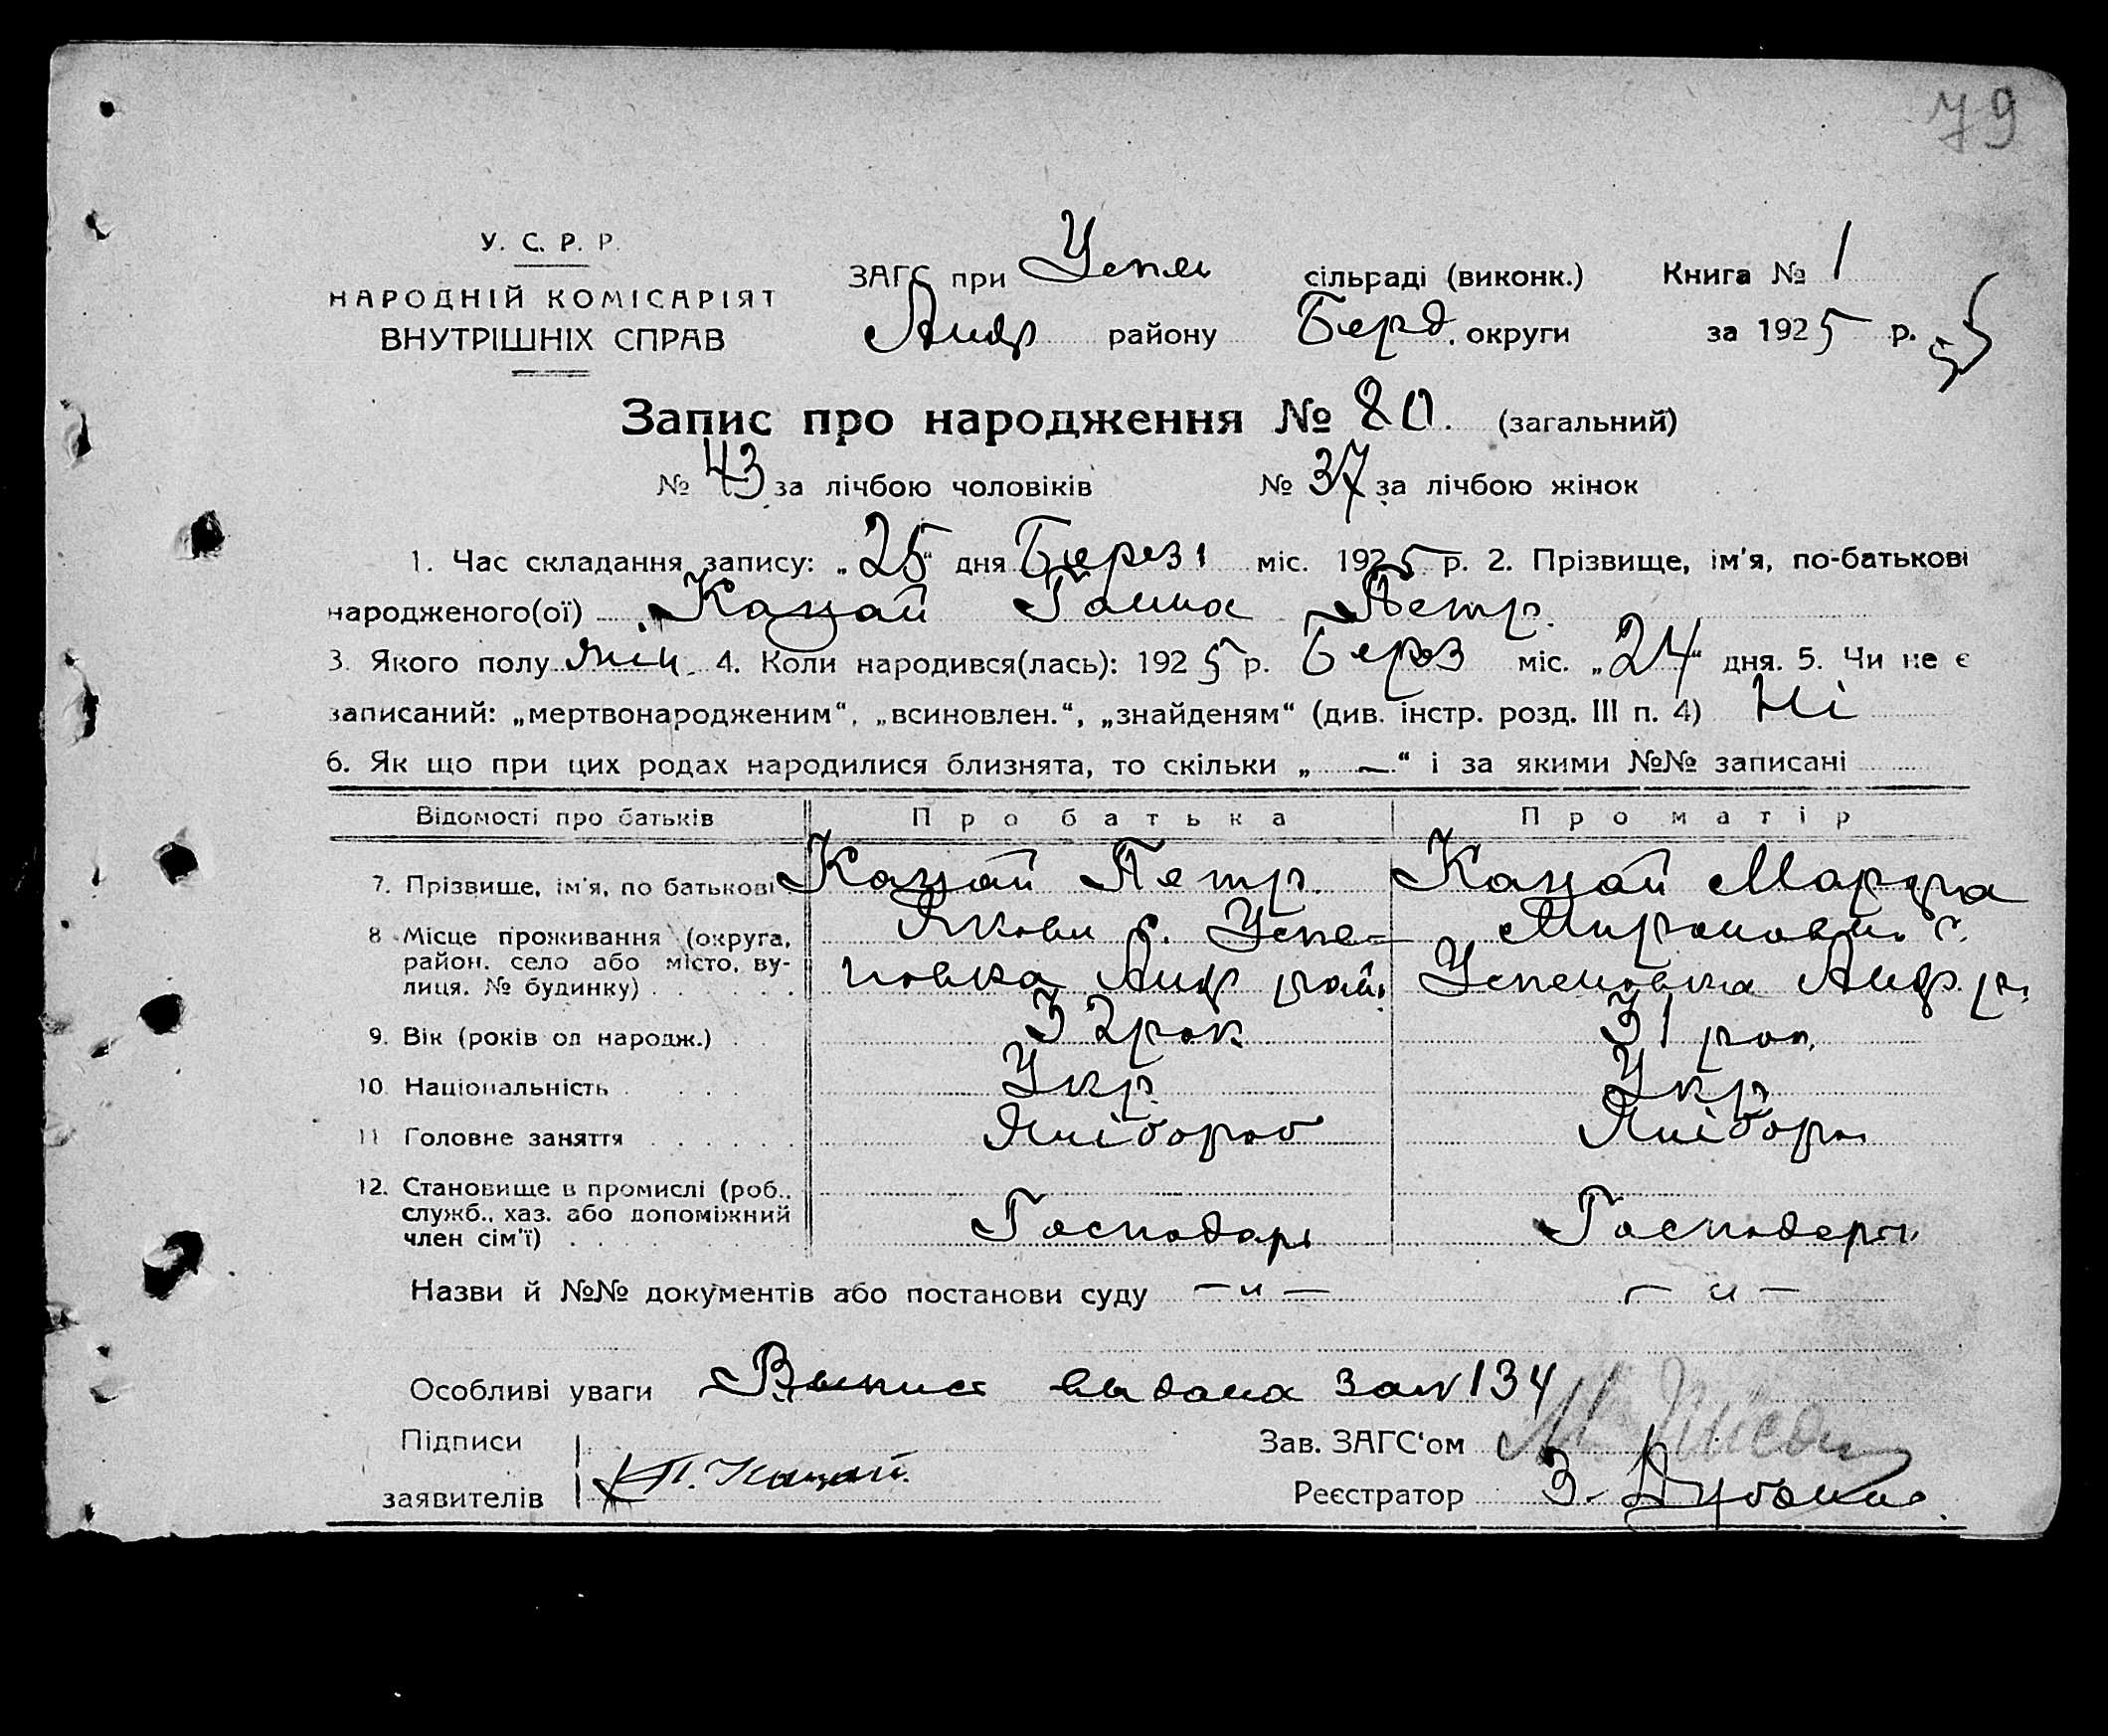 79
У. С. Р. Р.
НАРОДНІЙ КОМІСАРІЯТ
ВНУТРІШНІХ СПРАВ
ЗАГС при Успен сільраді (виконк.) Книга № 1
Андр району Берд. округи за 1925 р.
Запис про народження № 80. (загальний)
№ 43 за лічбою чоловіків № 37 за лічбою жінок
1. Час складання запису: „25“ дня Березі міс. 1925 р. 2. Прізвище, ім'я, по-батькові
народженого(ої) Кацай Ганна Петр.
3. Якого полу жін. 4. Коли народився(лась): 1925 р. Берез міс. „24“ дня. 5. Чи не є
записаний: „мертвонародженим“, „всиновлен.“, „знайденям“ (див. інстр. розд. III п. 4) Ні
6. Як що при цих родах народилися близнята, то скільки „—“ і за якими №№ записані
Відомості про батьків Про батька Про матір
7. Прізвище, ім'я, по батькові Кацай Петр. Кацай Марфа
8 Місце проживання (округа, район, село або місто, вулиця, № будинку) Якови с. Успе- Миронови. с.
новка Андр рай. Успеновка Андр. р.
9. Вік (років од народж.) 32 рок 31 рок.
10 Національність Укр. Укр
11 Головне заняття Хлібороб Хлібор.
12. Становище в промислі (роб., служб., хаз. або допоміжний член сім'ї) Господарь Господарк.
Назви й №№ документів або постанови суду — „ — — „ —
Особливі уваги Выпись выдана за № 134
Підписи Зав. ЗАГС'ом
заявителів П. Кацай. Реєстратор З.